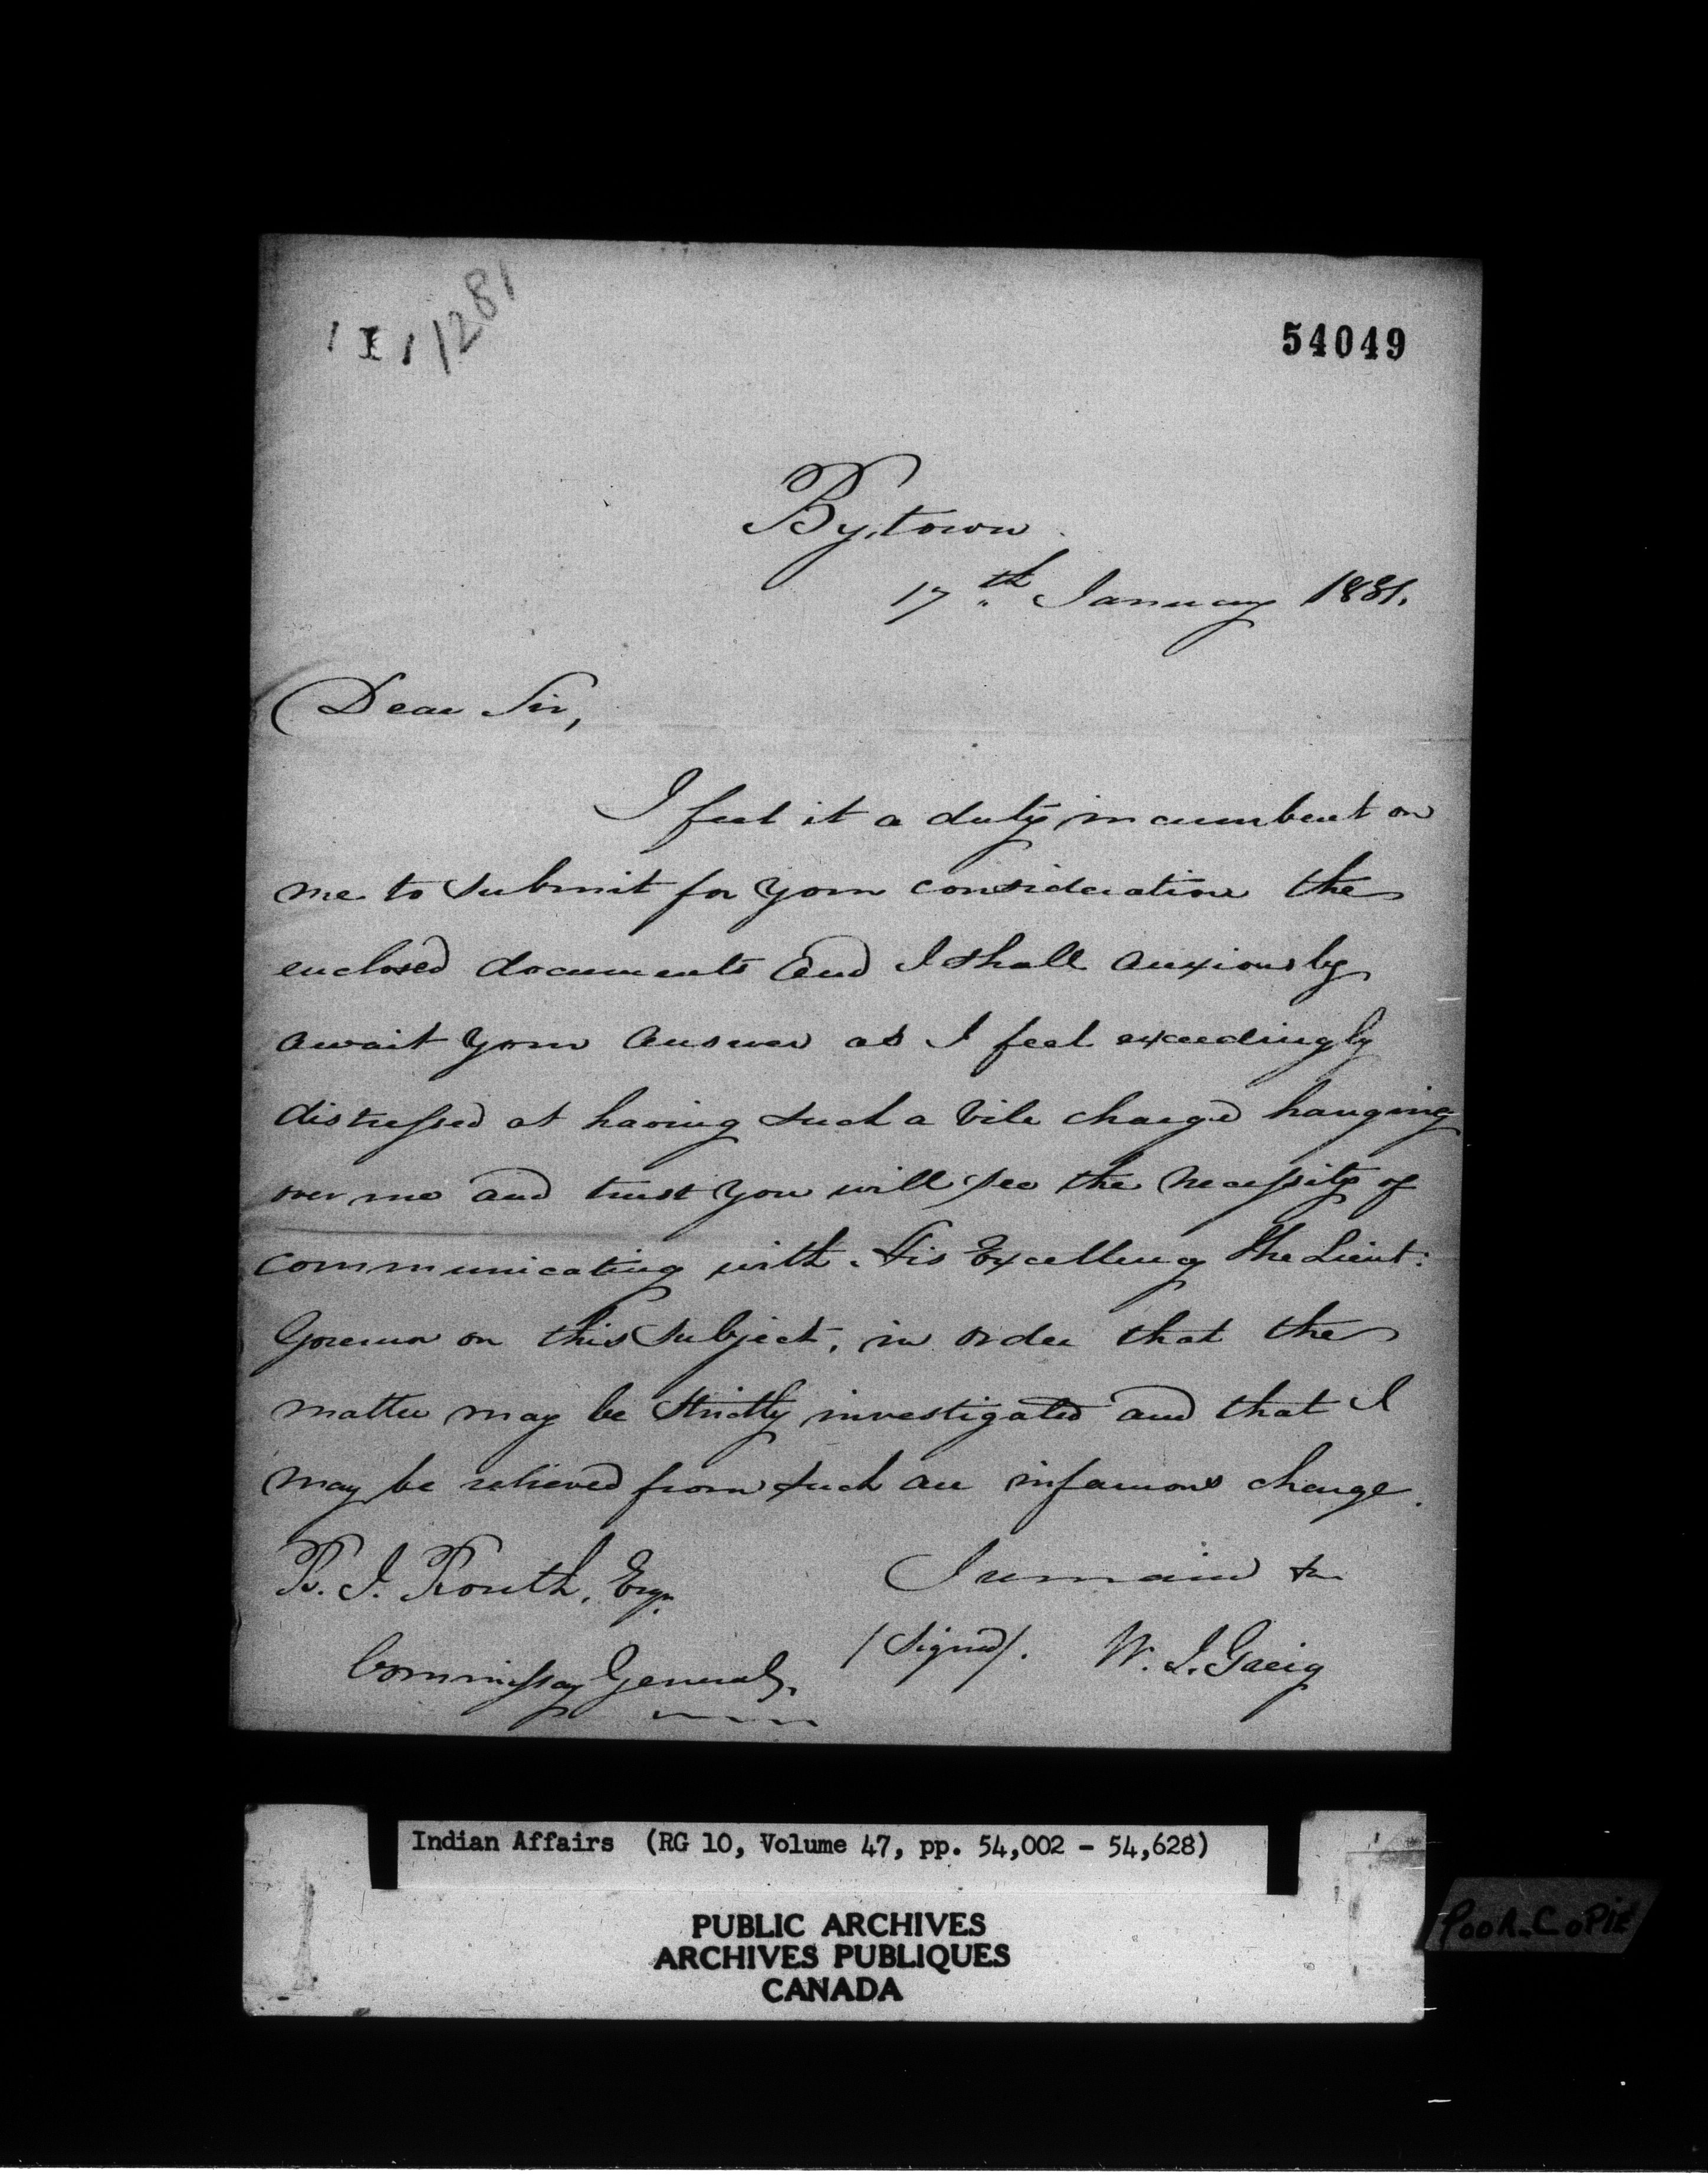 1 I 1 1281
54049
Bytown
17th January 1831.
Dear Sir,
I feel it a duty incumbent on
me to submit for your consideration the
enclosed documents and I shall anxiously
await your answer as I feel exceedingly
distressed at having such a vile charge hanging
over me and trust you will see the necessity of
communicating with His Excellency The Lieut:
Governor on this subject, in order that the
matter may be strictly investigated and that I
may be relieved from such an infamous charge.
I remain &c
R. I. Routh, Esqr.
(Signed). W. J. Greig
Commissary General,
Indian Affairs (RG 10, Volume 47, pp. 54,002 - 54,628)
PUBLIC ARCHIVES
ARCHIVES PUBLIQUES
CANADA
POOR COPIE